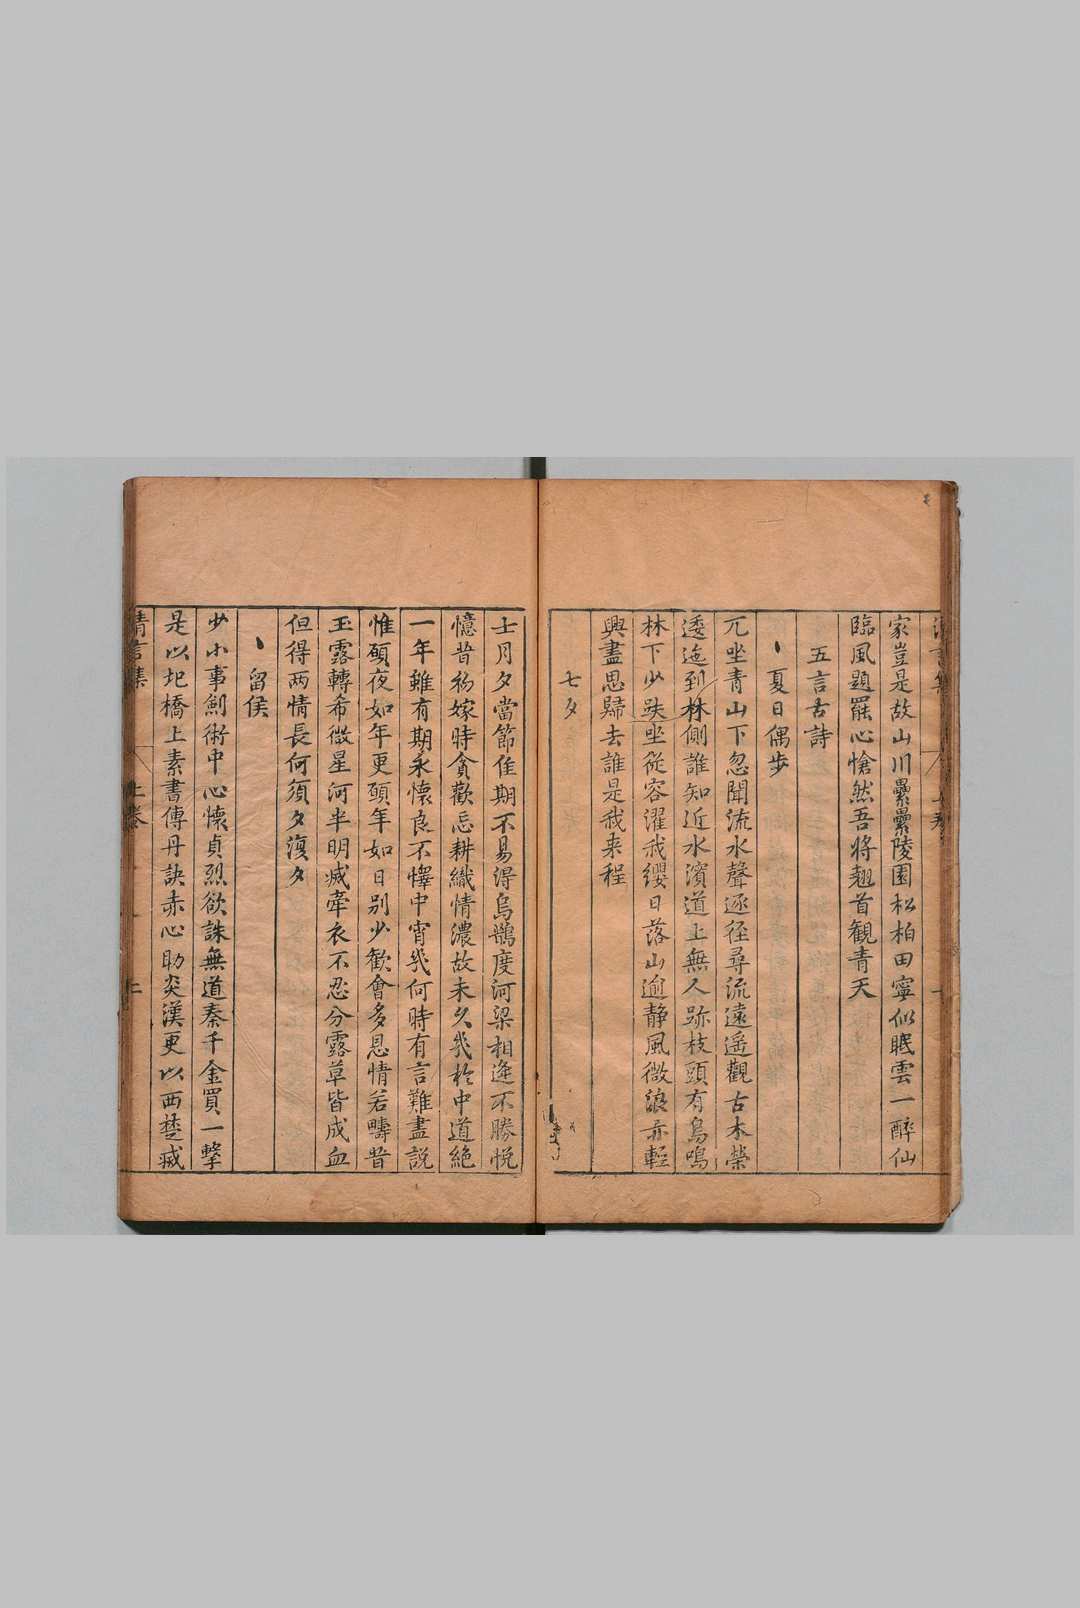 家豈是故山川纍纍陵園松柏田寧似眠雲一醉仙
臨風題罷心愴然吾將翹首觀青天
五言古詩
夏日偶步
兀坐青山下忽聞流水聲逐徑尋流遠遥觀古木榮
逶迤到林側誰知近水濱道上無人跡枝頭有鳥鳴
林下少趺坐從容濯我纓日落山逾静風微浪亦輕
興盡思歸去誰是我来程
七夕
七月夕當節佳期不易得烏鵲度河梁相逢不勝悅
憶昔初嫁時貪歡忘耕織情濃故未久幾於中道絕
一年雖有期永懷良不懌中宵幾何時有言難盡說
惟願夜如年更願年如日别少歡會多恩情若疇昔
玉露轉希微星河半明滅牽衣不忍分露草皆成血
但得两情長何須夕復夕
留侯
少小事劍術中心懷貞烈欲誅無道秦千金買一擊
是以圯橋上素書傳丹訣赤心助炎漢更以西楚滅
清言集 上卷